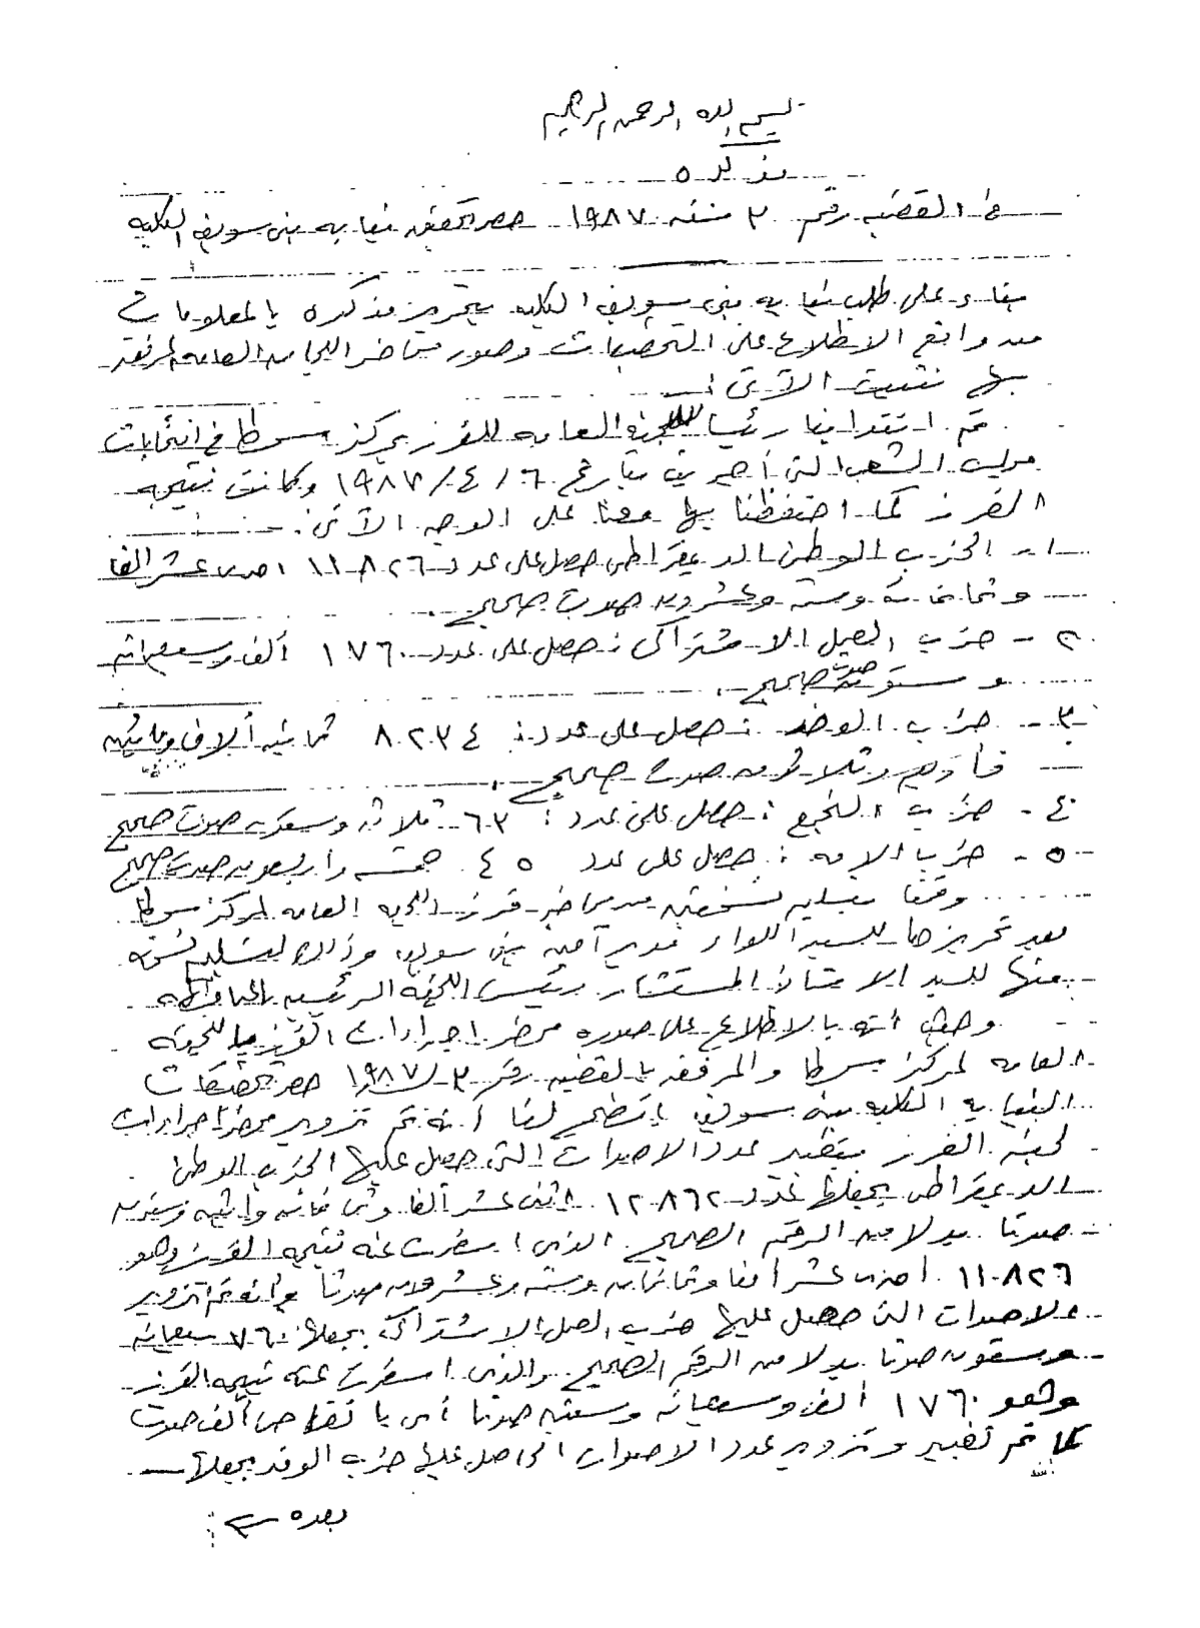 بسم الله الرحمن الرحيم
مذكره
فى القضيه رقم ٣ سنه ١٩٨٧ حصر تحقيق نيابه بنى سويف الكليه
بناء على طلب نيابه بنى سويف الكليه بتحرير مذكره بالمعلومات
من واقع الاطلاع على التحقيقات وصور محاضر اللجان العامه المرفقه
بها نثبت الآتى :
تم انتدابنا رئيسا للجنه العامه للفرز بمركز سمسطا فى انتخابات
مجلس الشعب التى أجريت بتاريخ ٦ / ٤ / ١٩٨٧ وكانت نتيجه
الفرز كما احتفظنا بها معنا على الوجه الآتى :
١ - الحزب الوطنى الديمقراطى حصل على عدد ١١٨٢٦ احدى عشر الفا
وثمانمائه وسته وعشرون صوت صحيح .
٢ - حزب العمل الاشتراكى : حصل على عدد ١٧٦٠ ألف وسبعمائه
وستون صوت صحيح .
٣ - حزب الوفد : حصل على عدد : ٨٢٣٤ ثمانيه ألاف ومائتين
وثلاثون صوت صحيح .
٤ - حزب التجمع : حصل على عدد : ٦٣ ثلاثه وستون صوت صحيح
٥ - حزب الامه : حصل على عدد ٤٥ خمسه وأربعون صوت صحيح
وقمنا بتسليم نسختين من محاضر فرز اللجنه العامه لمركز سمسطا
بعد تحريرها للسيد اللواء مدير أمن بنى سويف وذلك لتسليم نسخه
منها للسيد الاستاذ المستشار رئيس اللجنه الرئيسيه بالمحافظه .
وحيث أنه بالاطلاع على صوره محضر اجراءات الفرز باللجنه
العامه لمركز سمسطا والمرفقه بالقضيه رقم ٣ / ١٩٨٧ حصر تحقيقات
النيابه الكليه ببنى سويف اتضح لنا أنه تم تزوير محضر اجراءات
لجنه الفرز بتغيير عدد الاصوات التى حصل عليها الحزب الوطنى
الديمقراطى بجعلها عدد ١٢٨٦٢ اثنى عشر ألفا وثمانمائه واثنين وستون
صوتا بدلا من الرقم الصحيح الذى اسفرت عنه نتيجه الفرز وهو
١١٨٢٦ احدى عشر الفا وثمانمائه وسته وعشرون صوتا وانه تم تزوير
الاصوات التى حصل عليها حزب العمل الاشتراكى بجعلها ٧٦٠ سبعمائه
وستون صوتا بدلا من الرقم الصحيح والذى اسفرت عنه نتيجه الفرز
وهو ١٧٦٠ ألف وسبعمائه وستون صوتا أى بانقاص ألف صوت
كما تم تغيير وتزوير عدد الاصوات الحاصل عليها حزب الوفد بجعلها
بعده